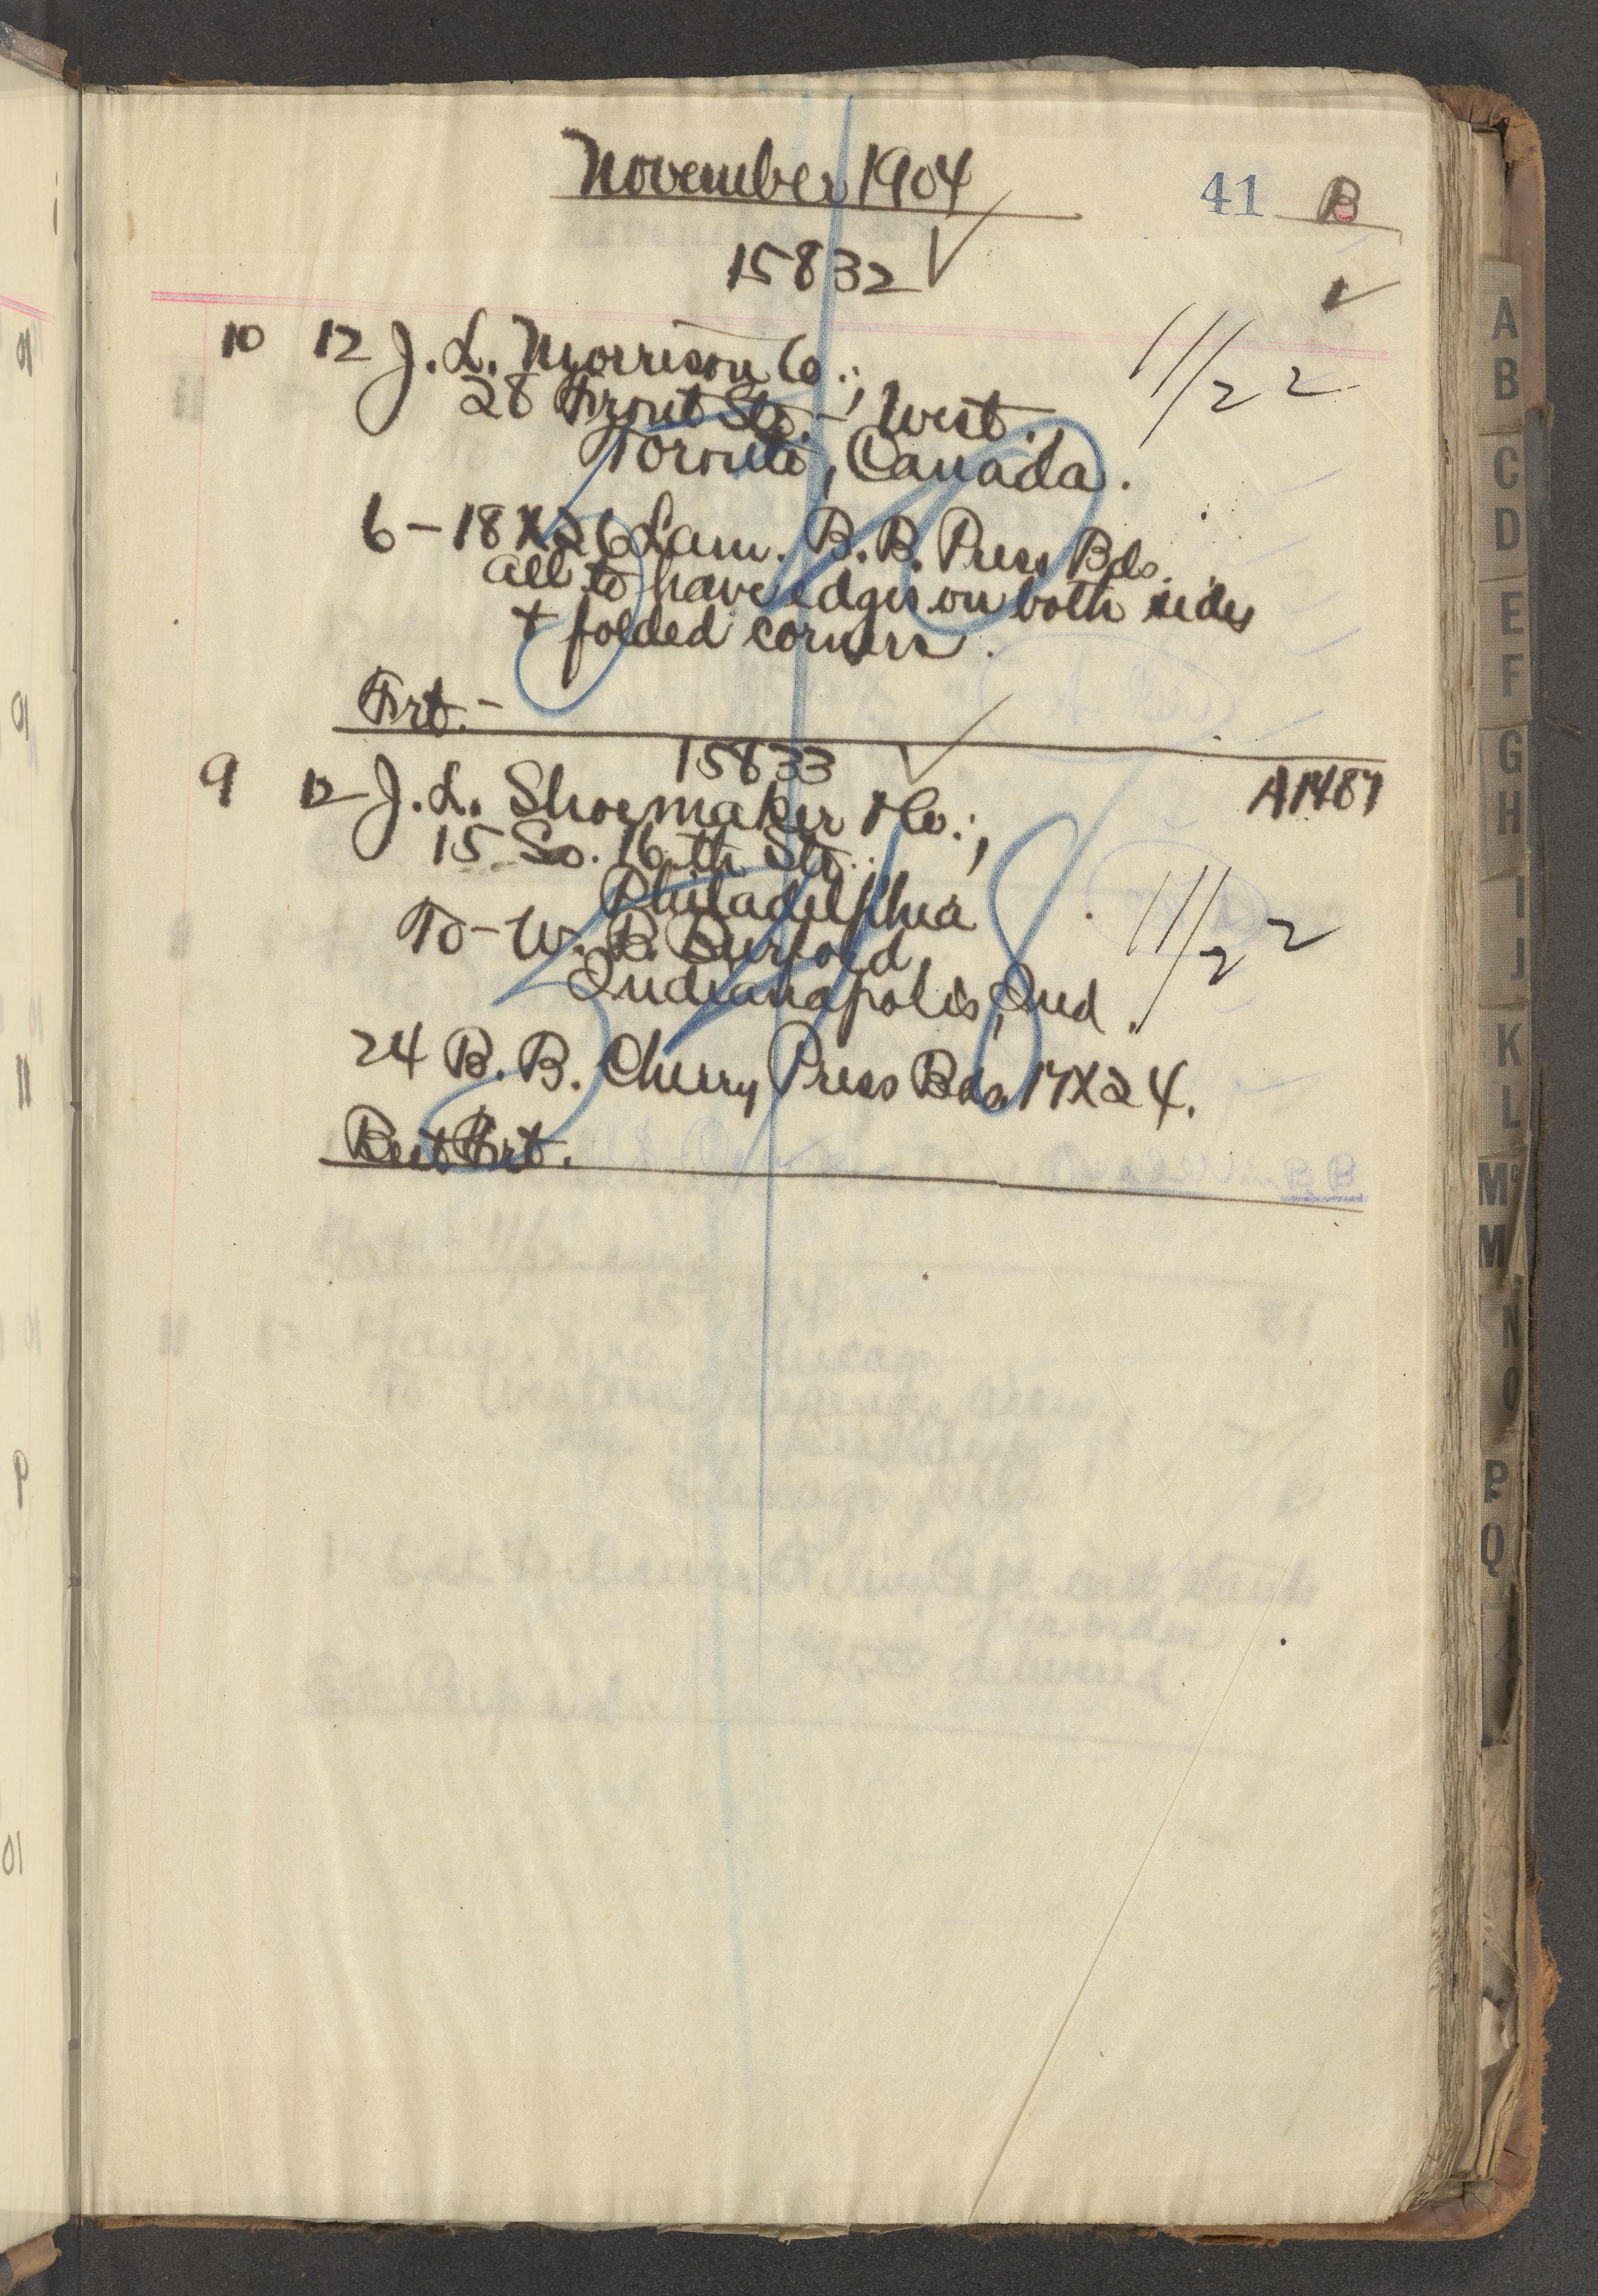 November 1904
41 B
15832 ✓
10 12 J. L. Morrison Co.;
28 Front St. - West.
Toronto, Canada.
11/22
6 - 18 X 26 Lam. B. B. Press Bds.
all to have edges on both sides
+ folded corners.
Frt. -
15833 ✓
A1487
9 12 J. L. Shoemaker & Co.;
15 So. 16th St.
Philadelphia
To - W. B. Burford,
Indianapolis, Ind.
11/22
24 B. B. Cherry Press Bds. 17 X 24.
Best Frt.
A
B
C
D
E
F
G
H
I
J
K
L
Mc
M
N
O
P
Q